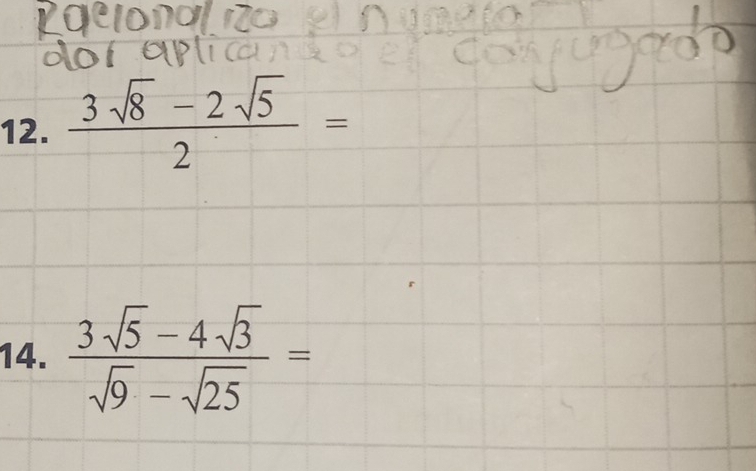 Racionaliza el numera
dor aplicando el conjugado
12. \frac{3\sqrt{8} - 2\sqrt{5}}{2} =
14. \frac{3\sqrt{5} - 4\sqrt{3}}{\sqrt{9} - \sqrt{25}} =